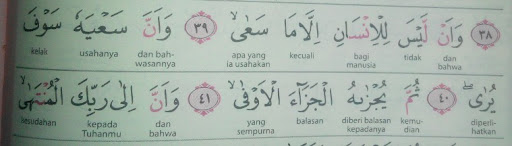 ٣٨ وَاَنْ لَّيْسَ لِلْاِنْسَانِ اِلَّا مَا سَعٰىۙ ٣٩ وَاَنَّ سَعْيَهٗ سَوْفَ
dan bahwa tidak bagi manusia kecuali apa yang ia usahakan dan bah-wasannya usahanya kelak
يُرٰىۖ ٤٠ ثُمَّ يُجْزٰىهُ الْجَزَاۤءَ الْاَوْفٰىۙ ٤١ وَاَنَّ اِلٰى رَبِّكَ الْمُنْتَهٰىۙ
diperli-hatkan kemu-dian diberi balasan kepadanya balasan yang sempurna dan bahwa kepada Tuhanmu kesudahan